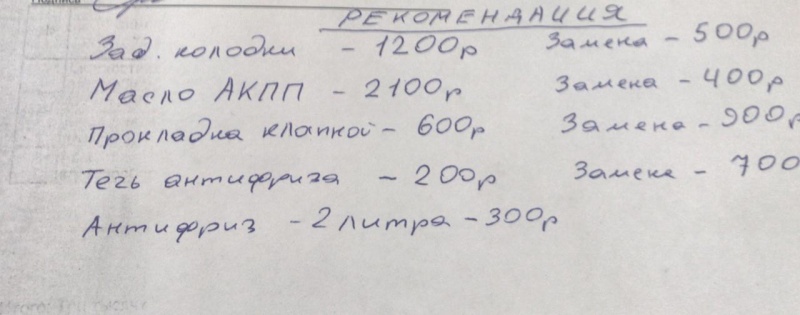 РЕКОМЕНДАЦИЯ
Зад. колодки - 1200р Замена - 500р
Масло АКПП - 2100р Замена - 400р
Прокладка клапной - 600р Замена - 900р
Течь антифриза - 200р Замена - 700
Антифриз - 2 литра - 300р